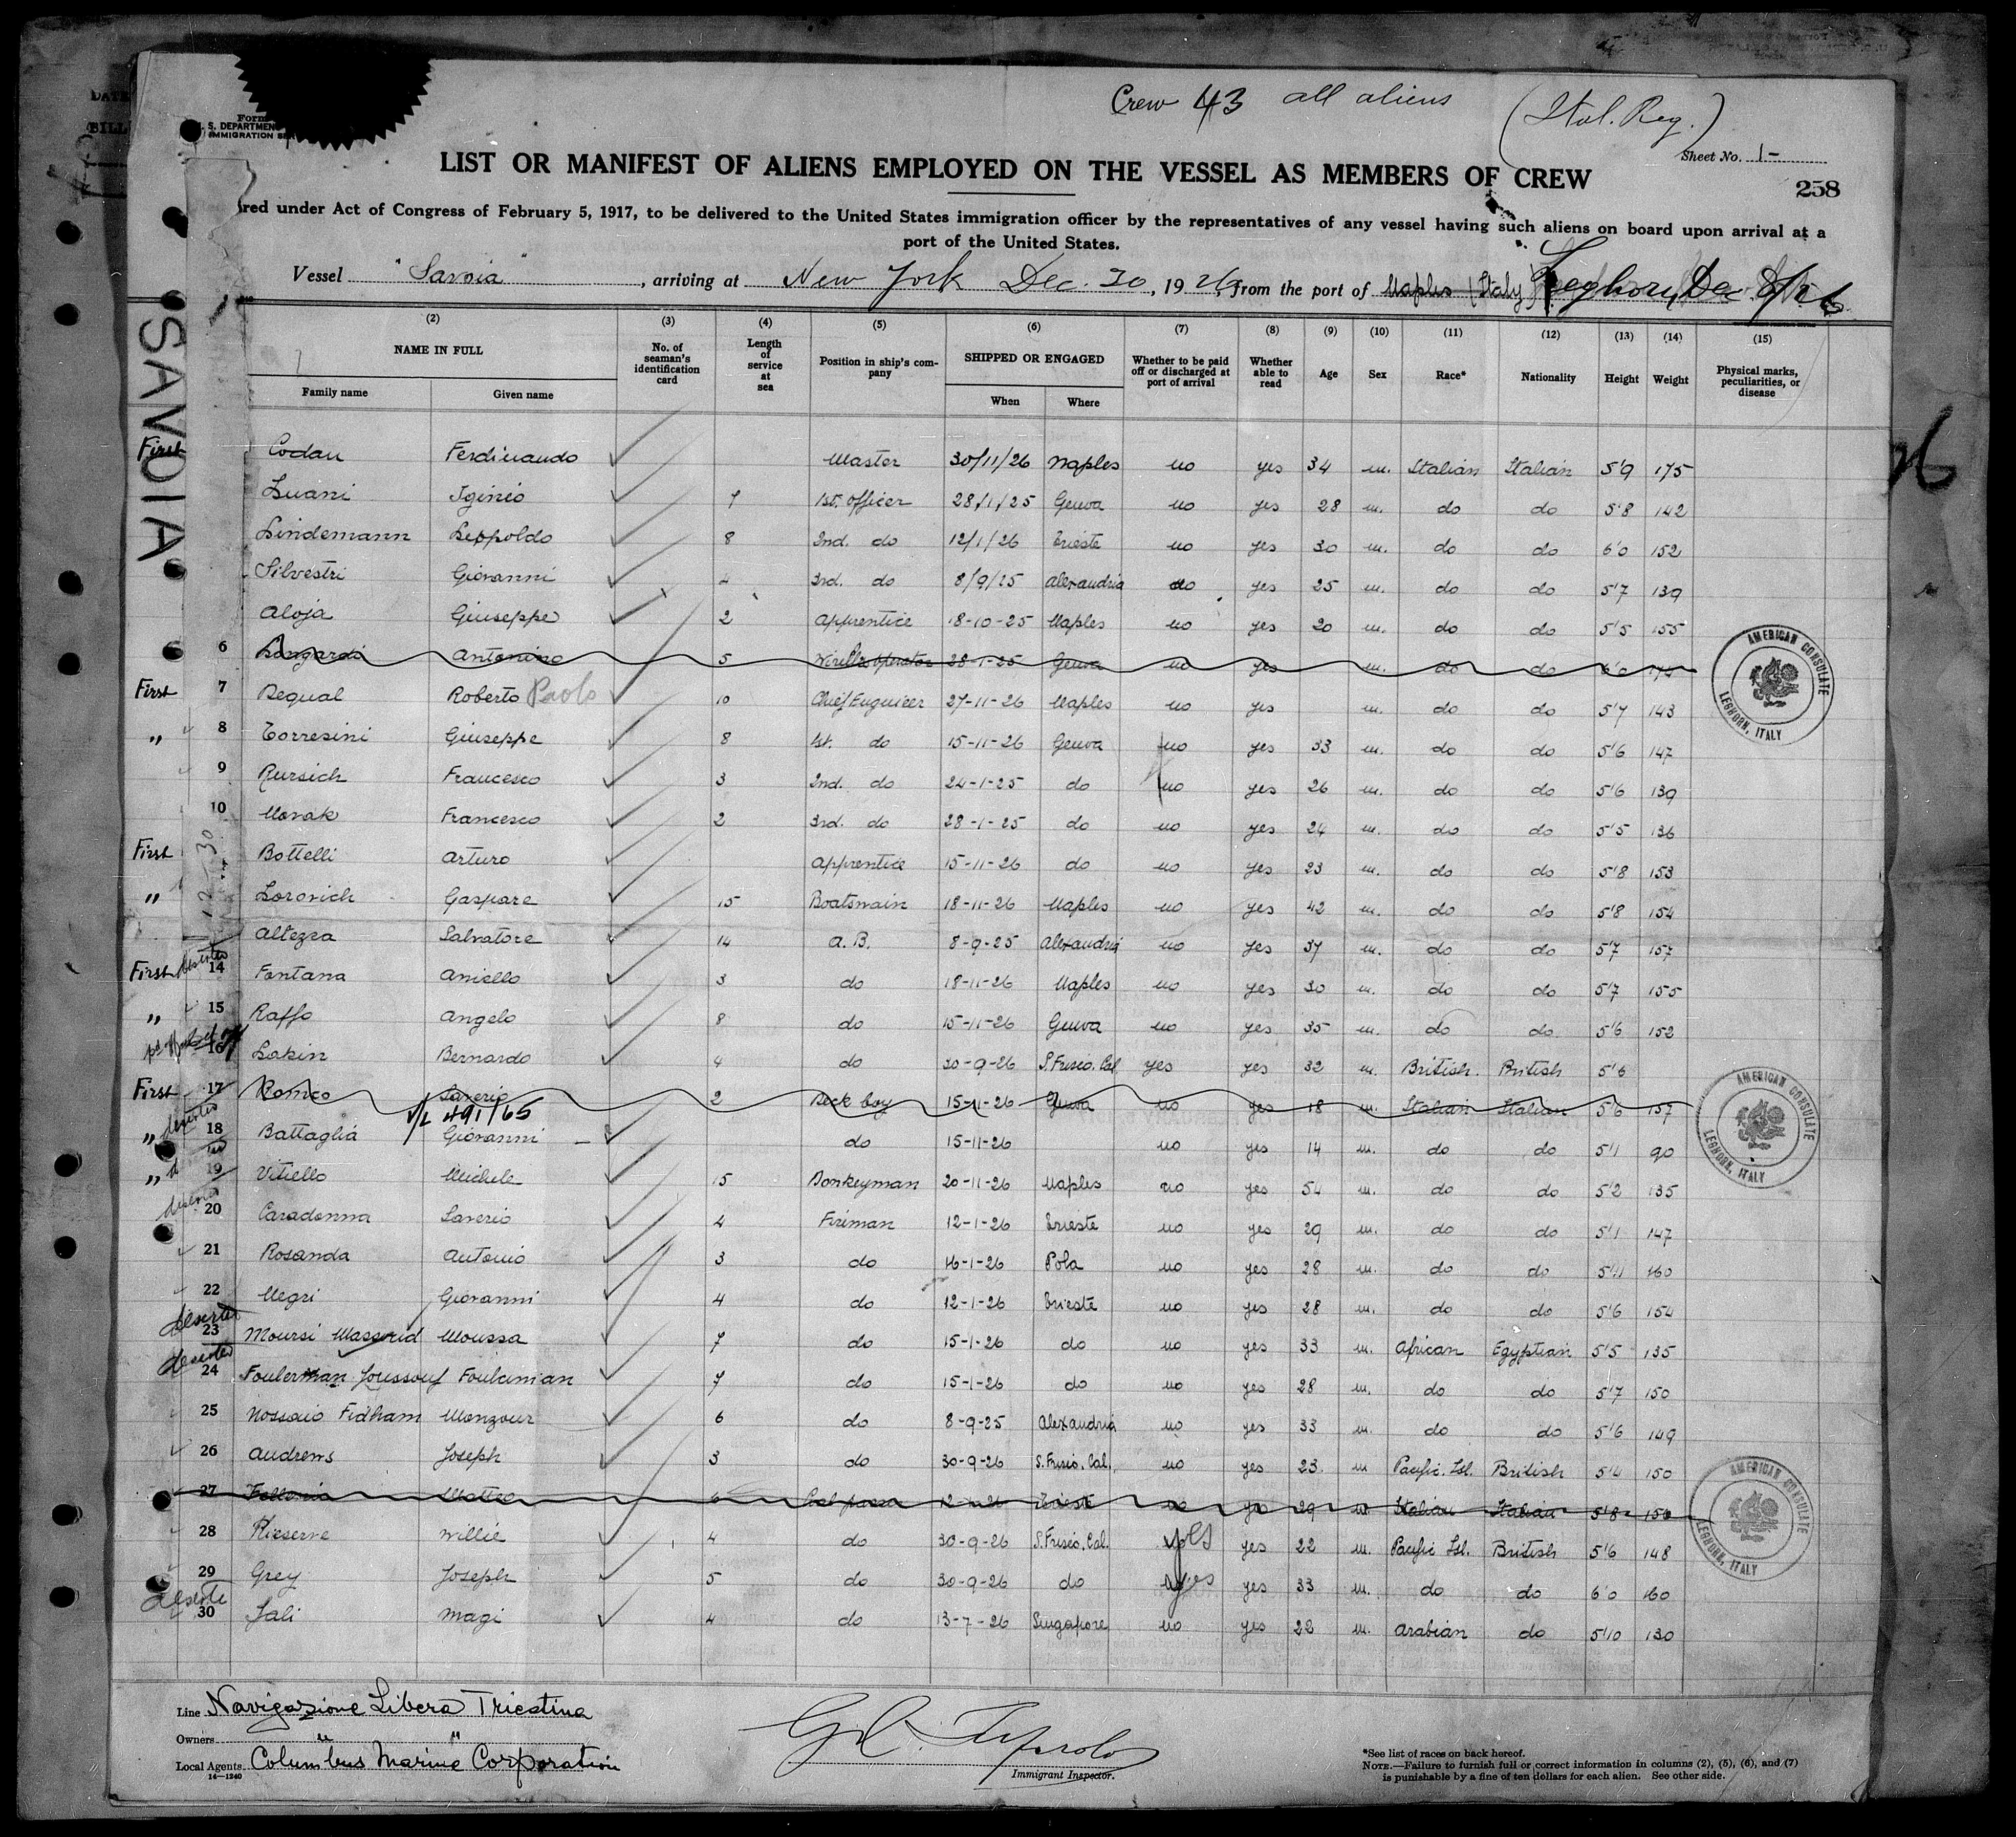 Crew 43 all aliens (Ital. Reg.)
Form
S. DEPARTMENT
IMMIGRATION
Sheet No. 1-
LIST OR MANIFEST OF ALIENS EMPLOYED ON THE VESSEL AS MEMBERS OF CREW
258
red under Act of Congress of February 5, 1917, to be delivered to the United States immigration officer by the representatives of any vessel having such aliens on board upon arrival at a
port of the United States.
Vessel "Savoia", arriving at New York Dec. 30, 1926, from the port of Naples (Italy) Leghorn, Dec 8/26
SAVOIA
(2) (3) (4) (5) (6) (7) (8) (9) (10) (11) (12) (13) (14) (15)
NAME IN FULL No. of seaman's identification card Length of service at sea Position in ship's company SHIPPED OR ENGAGED Whether to be paid off or discharged at port of arrival Whether able to read Age Sex Race* Nationality Height Weight Physical marks, peculiarities, or disease
Family name Given name When Where
First Codan Ferdinando Master 30/11/26 Naples no yes 34 m. Italian Italian 5'9 175
Luani Iginio 7 1st. officer 28/1/25 Genva no yes 28 m. do do 5'8 142
Lindemann Leopoldo 8 2nd. do 12/1/26 Trieste no yes 30 m. do do 6'0 152
Silvestri Giovanni 4 3rd. do 8/9/25 Alexandria no yes 25 m. do do 5'7 139
Aloja Giuseppe 2 Apprentice 18-10-25 Naples no yes 20 m. do do 5'5 155
6 Antonino 5 Wireless operator 28-1-25 Genva no yes m. do do 6'0 175
First 7 Dequal Roberto Paolo 10 Chief Engineer 27-11-26 Naples no yes m. do do 5'7 143
" 8 Torresini Giuseppe 8 1st. do 15-11-26 Genva no yes 33 m. do do 5'6 147
9 Rursich Francesco 3 2nd. do 24-1-25 do no yes 26 m. do do 5'6 139
10 Novak Francesco 2 3rd. do 28-1-25 do no yes 24 m. do do 5'5 136
First Bottelli Arturo Apprentice 15-11-26 do no yes 23 m. do do 5'8 153
" Lorovich Gaspare 15 Boatswain 18-11-26 Naples no yes 42 m. do do 5'8 154
Altezza Salvatore 14 A.B. 8-9-25 Alexandria no yes 37 m. do do 5'7 157
First deserted 14 Fontana Aniello 3 do 18-11-26 Naples no yes 30 m. do do 5'7 155
" 15 Raffo Angelo 8 do 15-11-26 Genva no yes 35 m. do do 5'6 152
16 Lakin Bernardo 4 do 30-9-26 S. Frisco. Cal yes yes 32 m. British. British 5'6
First 17 Romeo Saverio 2 Deck boy 15-11-26 Genva no yes 18 m. Italian Italian 5'6 137
V/L 491/65
" deserted 18 Battaglia Giovanni - do 15-11-26 no yes 14 m. do do 5'1 90
" 19 Vitiello Michele 15 Donkeyman 20-11-26 Naples no yes 54 m. do do 5'2 135
deserted 20 Caradonna Saverio 4 Fireman 12-1-26 Trieste no yes 29 m. do do 5'1 147
21 Rosanda Antonio 3 do 16-1-26 Pola no yes 28 m. do do 5'11 160
22 Negri Giovanni 4 do 12-1-26 Trieste no yes 28 m. do do 5'6 154
deserted 23 Moursi Massoud Moussa 7 do 15-1-26 do no yes 33 m. African Egyptian 5'5 135
deserted 24 Foulerman Joussouf Foulciman 7 do 15-1-26 do no yes 28 m. do do 5'7 150
25 Nossaio Fidham Monzour 6 do 8-9-25 Alexandria no yes 33 m. do do 5'6 149
26 Andrews Joseph 3 do 30-9-26 S. Frisco. Cal. no yes 23 m Pacific. Isl. British 5'4 150
27 Matteo 6 12-1-26 Trieste no yes 29 m Italian Italian 5'8 150
28 Rieserve Willie 4 do 30-9-26 S. Frisco. Cal. yes yes 22 m. Pacific Isl. British 5'6 148
29 Grey Joseph 5 do 30-9-26 do yes yes 33 m. do do 6'0 160
deserted 30 Jali Magi 4 do 13-7-26 Singapore no yes 28 m. Arabian do 5'10 130
AMERICAN CONSULATE LEGHORN, ITALY
AMERICAN CONSULATE LEGHORN, ITALY
AMERICAN CONSULATE LEGHORN, ITALY
Line Navigazione Libera Triestina
Owners " "
Local Agents Columbus Marine Corporation
14-1240
Immigrant Inspector.
*See list of races on back hereof.
NOTE.—Failure to furnish full or correct information in columns (2), (5), (6), and (7)
is punishable by a fine of ten dollars for each alien. See other side.